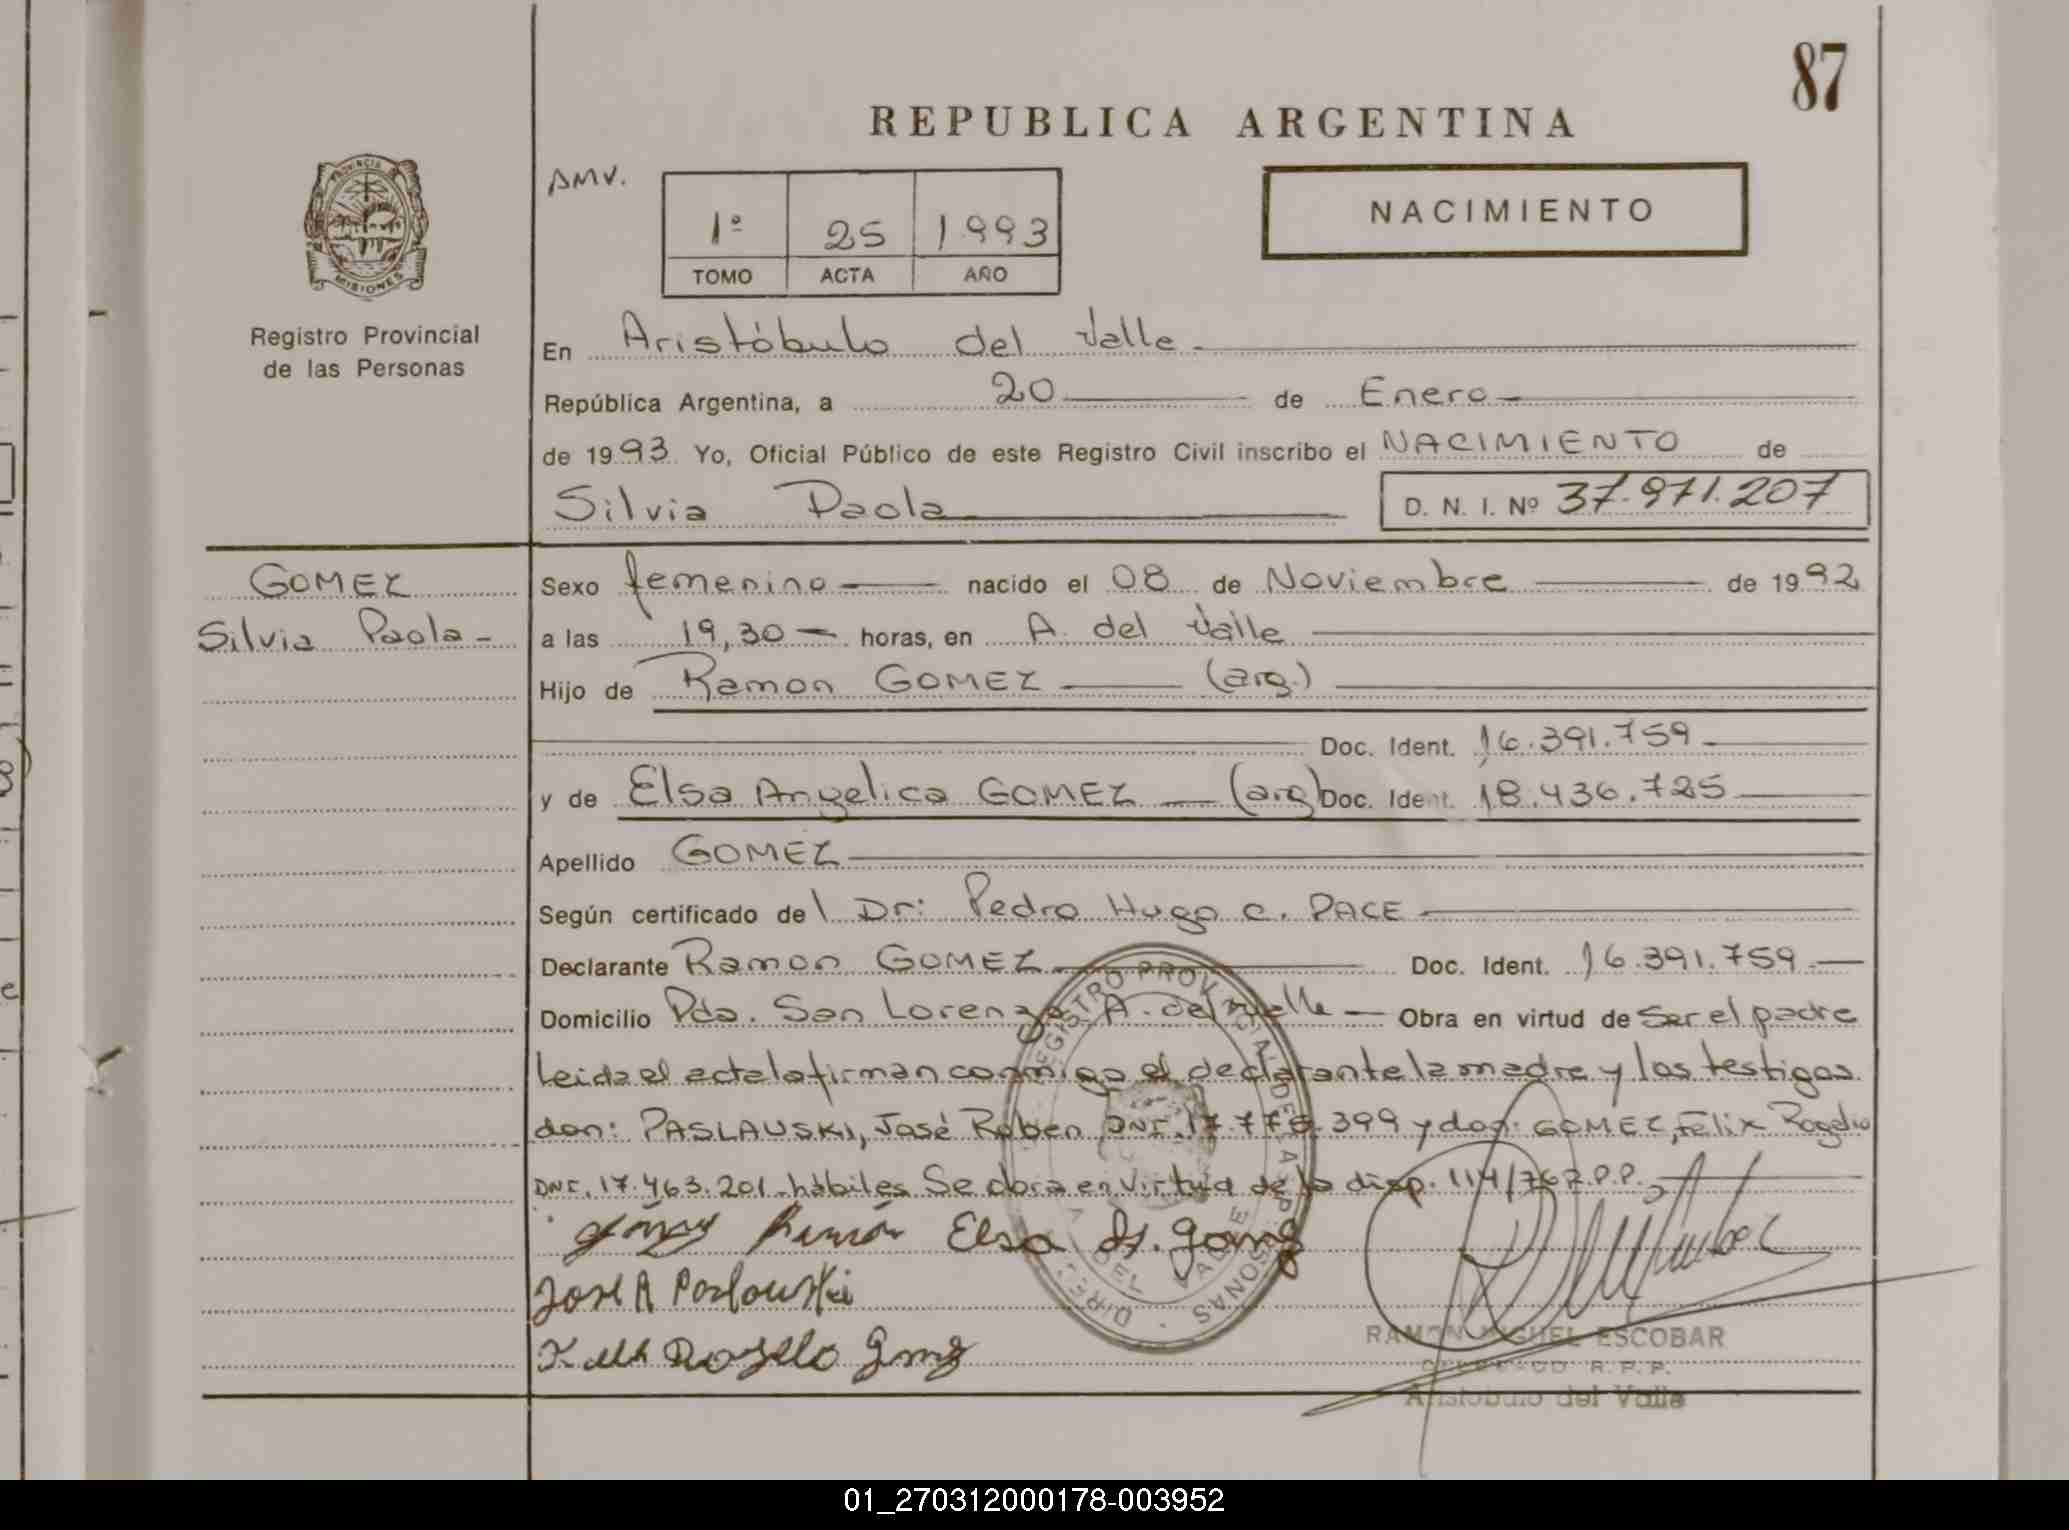 87
REPUBLICA ARGENTINA
AMV.
1º 25 1993
TOMO ACTA AÑO
NACIMIENTO
PROVINCIA
MISIONES
Registro Provincial
de las Personas
En Aristóbulo del Valle
República Argentina, a 20 de Enero
de 1993 Yo, Oficial Público de este Registro Civil inscribo el NACIMIENTO de
Silvia Paola D. N. I. Nº 37.971.207
GOMEZ
Silvia Paola
Sexo femenino nacido el 08 de Noviembre de 1992
a las 19,30 horas, en A. del Valle
Hijo de Ramon GOMEZ (arg.)
Doc. Ident. 16.391.759
y de Elsa Angelica GOMEZ (arg) Doc. Ident. 18.436.725
Apellido GOMEZ
Según certificado del Dr: Pedro Hugo C. PACE
Declarante Ramon GOMEZ Doc. Ident. 16.391.759
Domicilio Pdo. San Lorenzo A. del Valle Obra en virtud de ser el padre
Leida el acta la firman conmigo el declarante la madre y los testigos
don: PASLAUSKI, José Roben DNI. 17.776.399 y don: GOMEZ, Felix Rogelio
DNI. 17.463.201 hábiles Se obra en virtud de la disp. 114/76 R.P.P.
Gómez Ramón Elsa A. Gomez
José R Poslouski
Rogelo Gomez
RAMON MIGUEL ESCOBAR
R. P. P.
Aristobulo del Valle
01_270312000178-003952